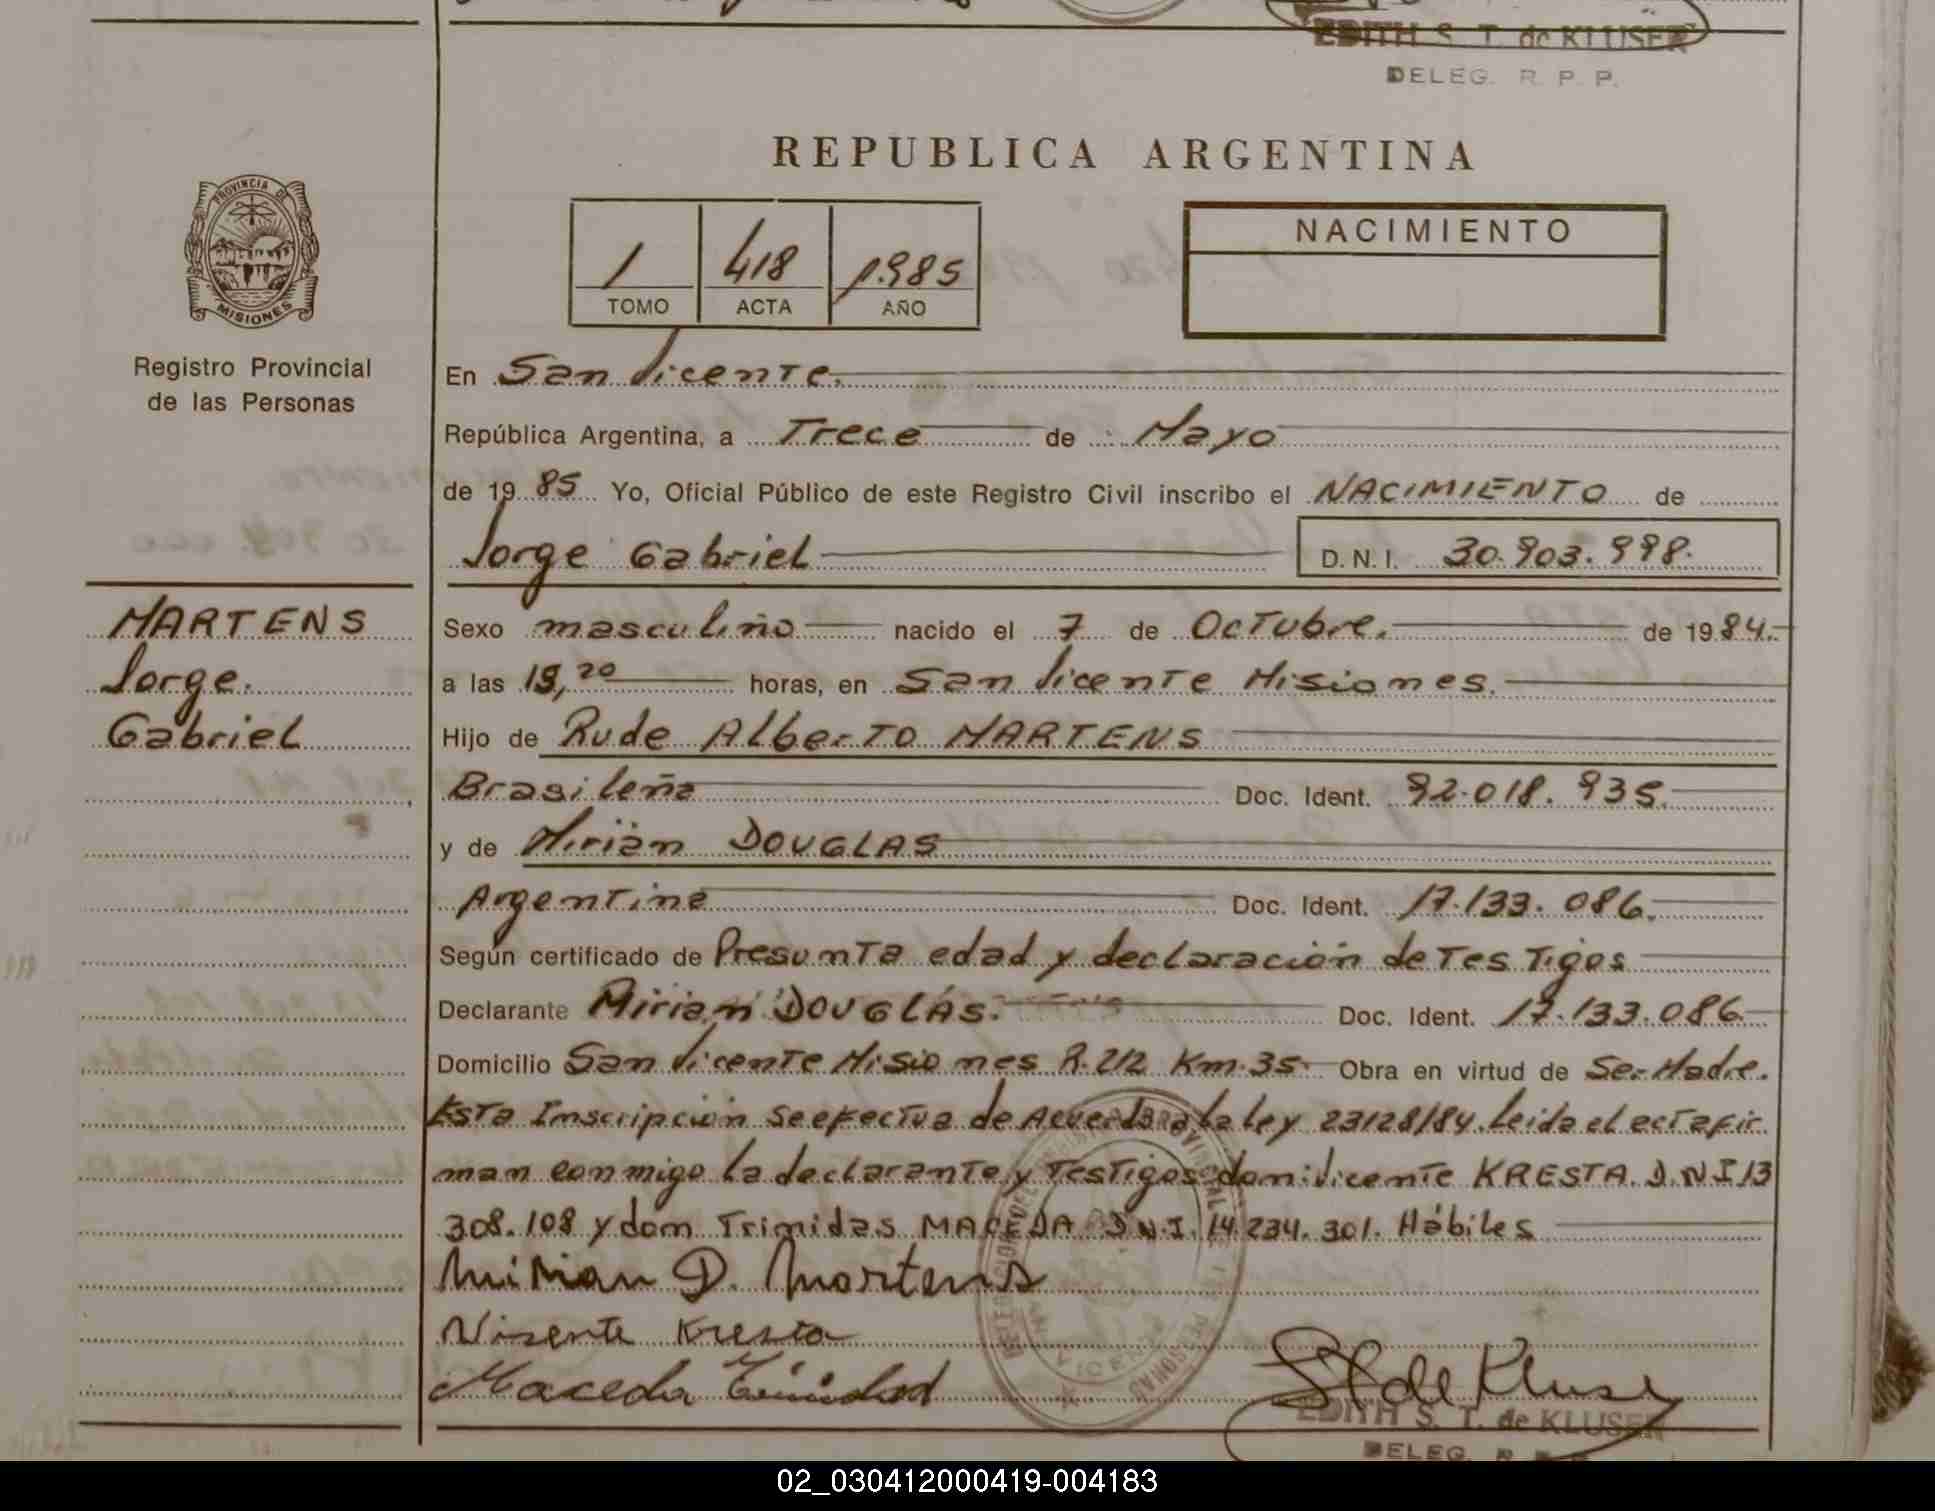 EDITH S. T. de KLUSER
DELEG. R. P. P.
REPUBLICA ARGENTINA
PROVINCIA DE
MISIONES
Registro Provincial
de las Personas
1 418 1.985
TOMO ACTA AÑO
NACIMIENTO
En San Vicente.
República Argentina, a Trece de Mayo
de 1985 Yo, Oficial Público de este Registro Civil inscribo el NACIMIENTO de
Jorge Gabriel D.N.I. 30.903.998.
MARTENS
Jorge.
Gabriel
Sexo masculino nacido el 7 de Octubre. de 1984.
a las 19,20 horas, en San Vicente Misiones.
Hijo de Rude Alberto MARTENS
Brasileña Doc. Ident. 92.018.935.
y de Mirian DOUGLAS
Argentina Doc. Ident. 17.133.086.
Según certificado de Presunta edad y declaración de Testigos
Declarante Mirian DOUGLAS. Doc. Ident. 17.133.086.
Domicilio San Vicente Misiones R.212 Km.35. Obra en virtud de Ser Madre.
Esta Inscripción se efectua de Acuerdo a la ley 23128/84. Leida el acta fir
man conmigo la declarante y Testigos don: Vicente KRESTA. D.N.I 13
308.108 y don Trinidas MACEDA D.N.I. 14.234.301. Hábiles
Mirian D. Martens
Visente Kresta
Maceda Trinidad
S T de Kluser
EDITH S. T. de KLUSER
DELEG. R. P. P.
02_030412000419-004183